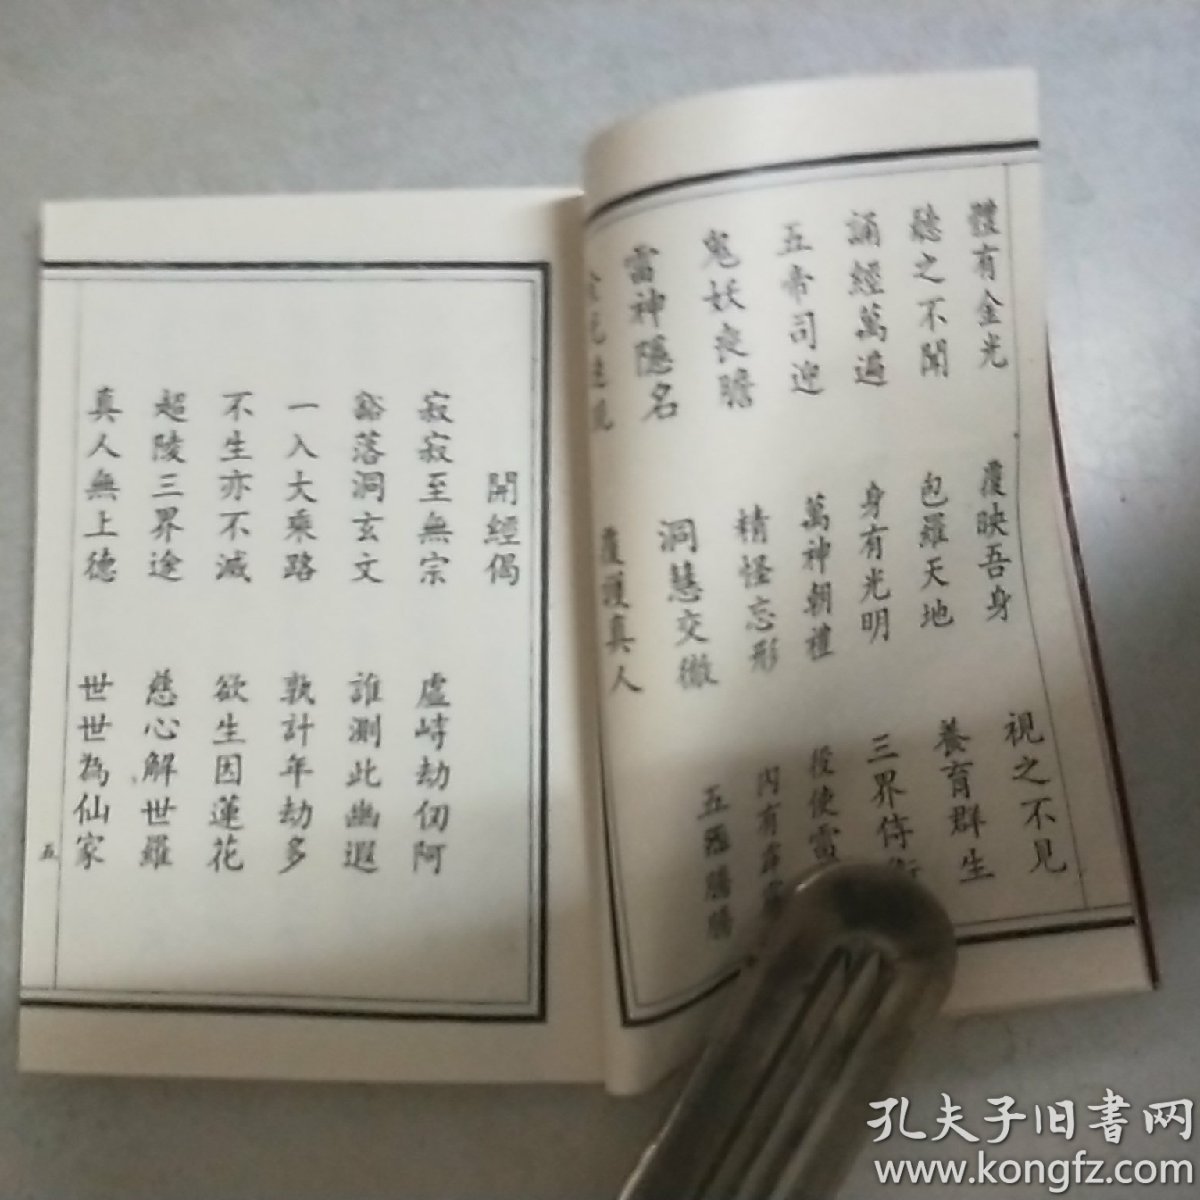 體有金光 覆映吾身 視之不見
聽之不聞 包羅天地 養育群生
誦經萬遍 身有光明 三界侍衛
五帝司迎 萬神朝禮 役使雷
鬼妖丧膽 精怪忘形 内有霹靂
雷神隱名 洞慧交徹 五
覆護真人
開經偈
寂寂至無宗 虛峙劫仞阿
豁落洞玄文 誰測此幽遐
一入大乘路 孰計年劫多
不生亦不滅 欲生因蓮花
超陵三界途 慈心解世羅
真人無上德 世世為仙家
五
孔夫子旧書网
www.kongfz.com